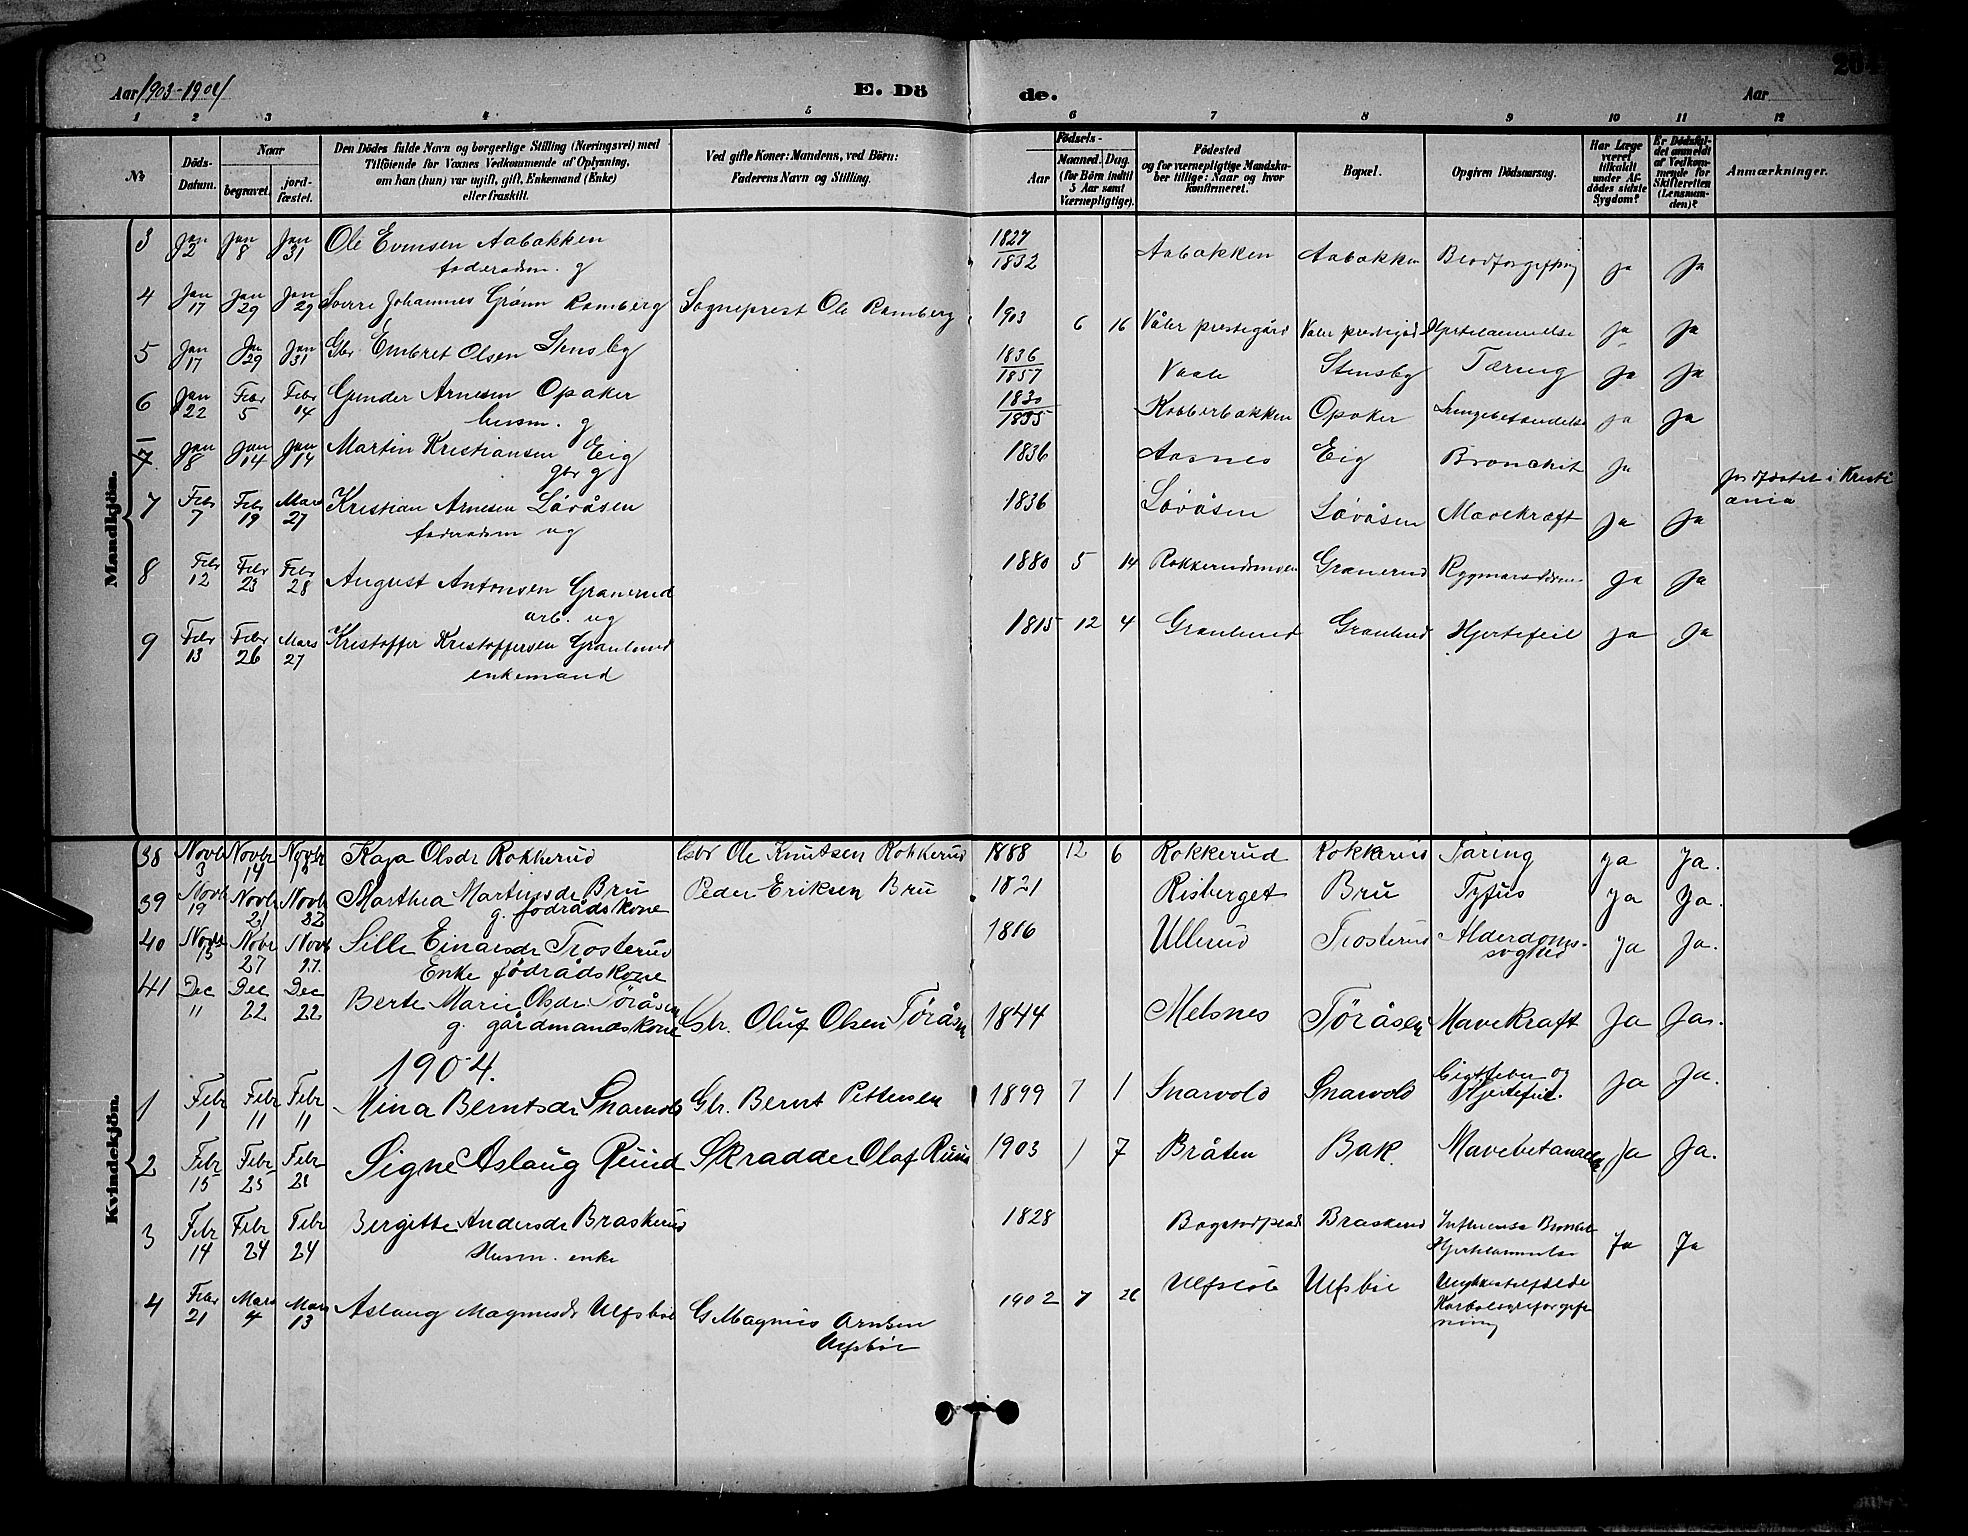 Aar 1903-1904 E. Dö de. Aar 204
1 2 3 4 5 6 7 8 9 10 11 12
No Döds-Datum. Naar begravet. jord-fæstet. Den Dödes fulde Navn og borgerlige Stilling (Næringsvei) med Tilföiende for Voxnes Vedkommende af Oplysning, om han (hun) var ugift, gift, Enkemand (Enke) eller fraskilt. Ved gifte Koner: Mandens, ved Börn: Faderens Navn og Stilling. Födsels- Aar Maaned. Dag. (for Börn indtil 5 Aar samt Værnepligtige). Födested og for værnepligtige Mandskaber tillige: Naar og hvor konfirmeret. Bopæl. Opgiven Dödsaarsag. Har Læge været tilkaldt under Afdödes sidste Sygdom? Er Dödsfaldet anmeldt af Vedkommende for Skifteretten (Lensmanden)? Anmærkninger.
Mandkjön.
3 Jan 2 Jan 8 Jan 31 Ole Evensen Aabakken 1827/1832 Aabakken Aabakken Blodforgiftning Ja Ja
foderaadsm. g
4 Jan 17 Jan 29 Jan 29 Sverre Johannes Grönn Ramberg Sogneprest Ole Ramberg 1903 6 16 Våler prestegård Våler prestegård Hjertelammelse Ja Ja
5 Jan 17 Jan 29 Jan 31 Gbr Embret Olsen Stensby 1836/1857 Vaale Stensby Tæring Ja Ja
6 Jan 22 Febr 5 Febr 14 Gunder Arnesen Opaker 1830/1835 Kobberbakken Opaker Lungebetændelse Ja Ja
husm. g
7 Jan 8 Jan 14 Jan 14 Martin Kristiansen Eig 1836 Aasnes Eig Bronchit Ja Jordfæstet i Kristiania
gbr g
7 Febr 7 Febr 19 Mars 27 Kristian Arnesen Löväsen 1836 Lövåsen Lövåsen Mavekræft Ja Ja
foderadsm ug
8 Febr 12 Febr 23 Febr 28 August Antonsen Granerud 1880 5 14 Rokkerudsmoen Granerud Ja Ja
arb. ug
9 Febr 13 Febr 26 Mars 27 Kristoffer Kristoffersen Graulund 1815 12 4 Graulund Graulund Hjertefeil Ja Ja
enkemand
Kvindekjön.
38 Novbr 3 Novbr 14 Novbr Kaja Olsdr Rokkerud Gbr Ole Knutsen Rokkerud 1888 12 6 Rokkerud Rokkerud Tæring Ja Ja.
39 Novbr 19 Novbr 21 Novbr 22 Marthea Martinsdr Bru Peder Eriksen Bru 1821 Risberget Bru Tyfus Ja Ja.
g. födrådskone
40 Novbr 15 Novbr 27 Novbr 27. Sille Einarsdr Trosterud 1816 Ullerud Trosterud Alderdoms-svaghed Ja Ja.
Enke födrådskone
41 Dec 11 Dec 22 Dec 22 Berte Marie Olsdr. Töråsen Gbr. Oluf Olsen Töråsen 1844 Melsnes Töråsen Mavekraft Ja Ja.
g. gårdmandskone
1904.
1 Febr 1 Febr 11 Febr 11 Mina Berntsdr Snarvold Gbr. Bernt Pettersen 1899 7 1 Snarvold Snarvold Gigtfeber og Hjertefeil. Ja Ja.
2 Febr 15 Febr 25 Febr 28 Signe Aslaug Ruud Skrædder Olaf Ruud 1903 1 7 Bråten Bak. Mavebetændelse Ja Ja.
3 Febr 14 Febr 24 Febr 24 Bergitte Andersdr Braskerud 1828 Braskerud Influensa Bronchit Hjertelammelse Ja Ja
Husm. enke
4 Febr 21 Mars 4 Mars 13 Aslaug Magnusdr Ulfsböl G Magnus Arnesen 1902 7 26 Ulfsböl Ulfsböl Ulykkestilfælde Karbolsyreforgiftning
Ulfsböl